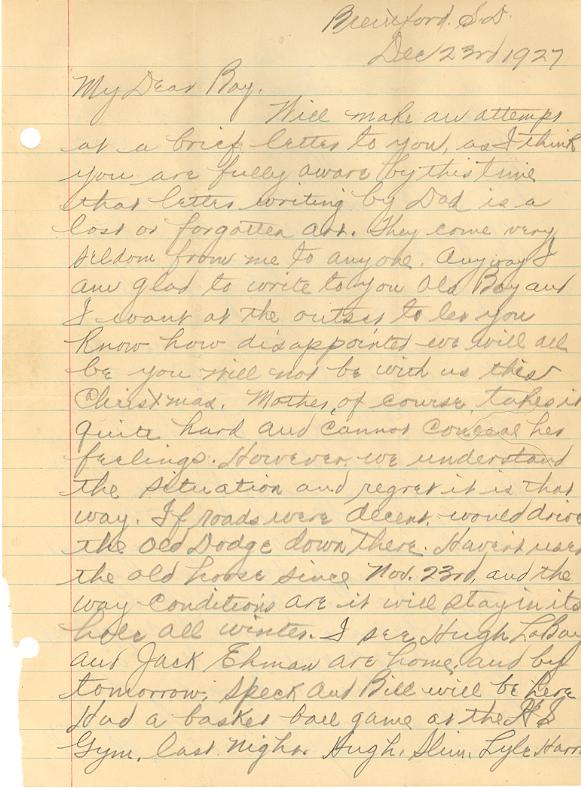 Brentford. S.D.
Dec 23rd 1927
My Dear Boy.
Will make an attempt
at a brief letter to you, as I think
you are fully aware by this time
that letter writing by Dad is a
lost or forgotten art. They come very
seldom from me to anyone. Anyway I
am glad to write to you Old Boy and
I want at the outset to let you
know how disappointed we will all
be you will not be with us this
Christmas. Mother, of course, takes it
quite hard and cannot conceal her
feelings. However, we understand
the situation and regret it is that
way. If roads were decent, would drive
the Old Dodge down there. Havent used
the old horse since Nov. 23rd, and the
way conditions are it will stay in its
hole all winter. I see Hugh LaBay
and Jack Ehman are home, and by
tomorrow, Speck and Bill will be here
Had a basket ball game at the H S
Gym. last night. Hugh, Slim, Lyle